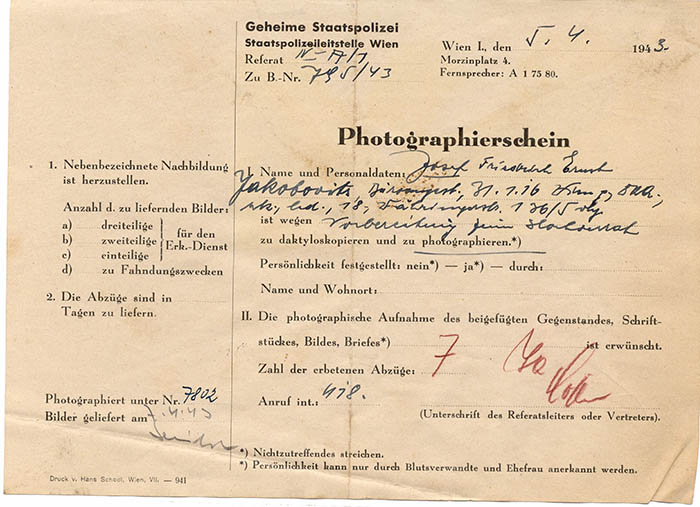 Geheime Staatspolizei
Staatspolizeileitstelle Wien
Referat IV-A/1
Zu B.-Nr. 795/43
Wien I., den 5. 4. 1943.
Morzinplatz 4.
Fernsprecher: A 1 75 80.
Photographierschein
1. Nebenbezeichnete Nachbildung
ist herzustellen.
Anzahl d. zu liefernden Bilder:
a) dreiteilige
b) zweiteilige
c) einteilige
für den
Erk.-Dienst
d) zu Fahndungszwecken
2. Die Abzüge sind in
Tagen zu liefern.
Photographiert unter Nr. 7802
Bilder geliefert am 7.4.43
I. Name und Personaldaten: Josef Friedrich Ernst
Jakobovits, 31.1.16 Wien, DRA.,
rk., led., 18., Währingerstr. 136/5 whg
ist wegen Vorbereitung zum Hochverrat
zu daktyloskopieren und zu photographieren.*)
Persönlichkeit festgestellt: nein*) — ja*) — durch:
Name und Wohnort:
II. Die photographische Aufnahme des beigefügten Gegenstandes, Schrift-
stückes, Bildes, Briefes*) ist erwünscht.
Zahl der erbetenen Abzüge: 7
Anruf int.: 418.
(Unterschrift des Referatsleiters oder Vertreters).
*) Nichtzutreffendes streichen.
*) Persönlichkeit kann nur durch Blutsverwandte und Ehefrau anerkannt werden.
Druck v. Hans Schodl, Wien, VII. — 941